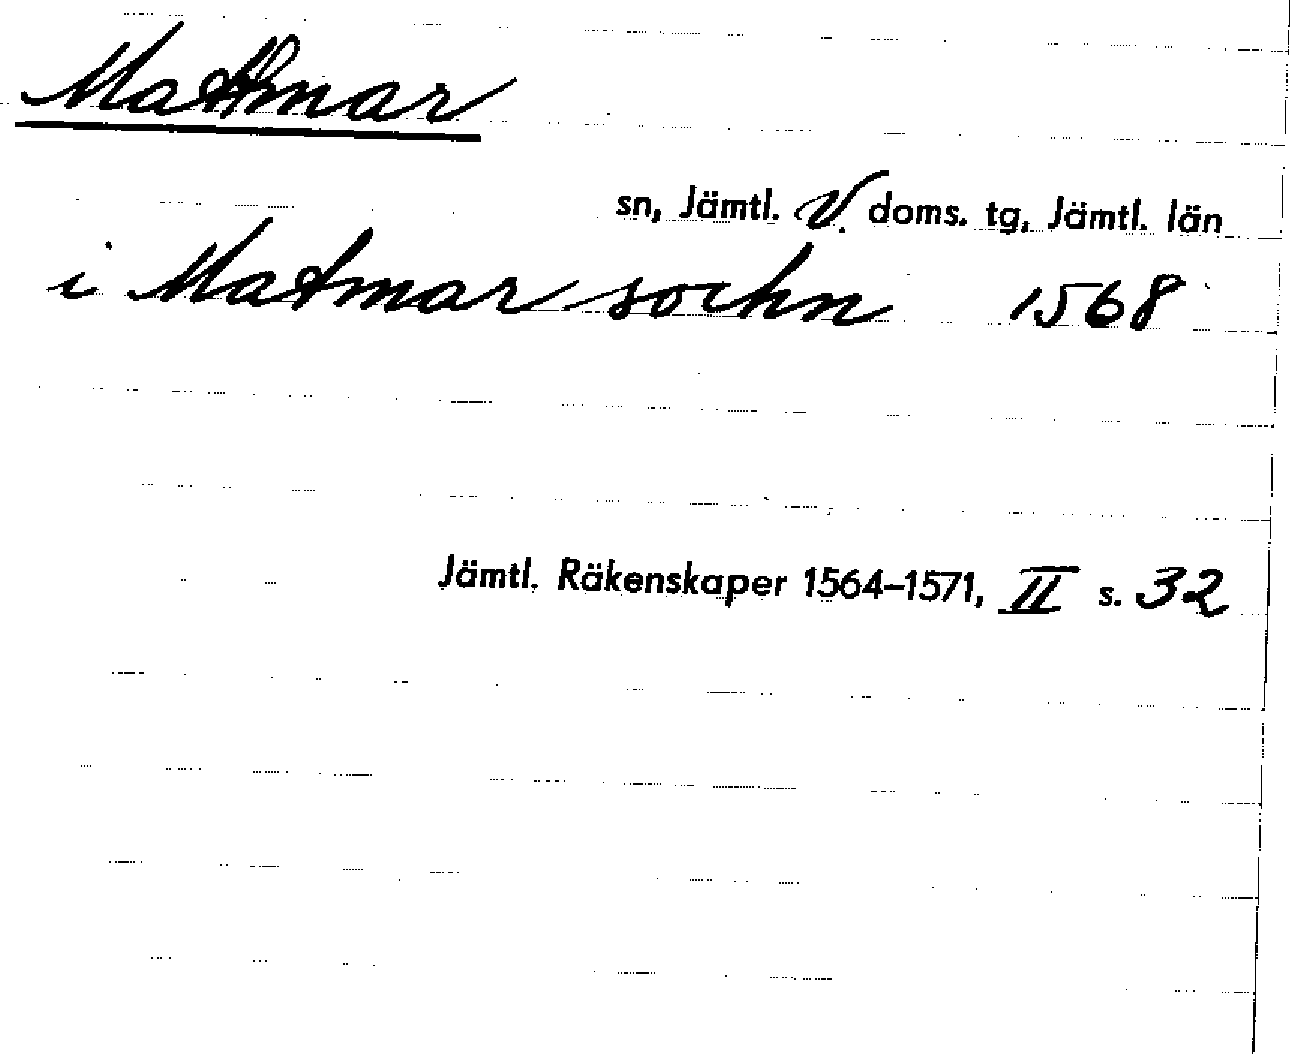 Mattmar
sn, Jämtl. V. doms. tg, Jämtl. län
i Matmar sochn 1568
Jämtl. Räkenskaper 1564–1571, II s. 32